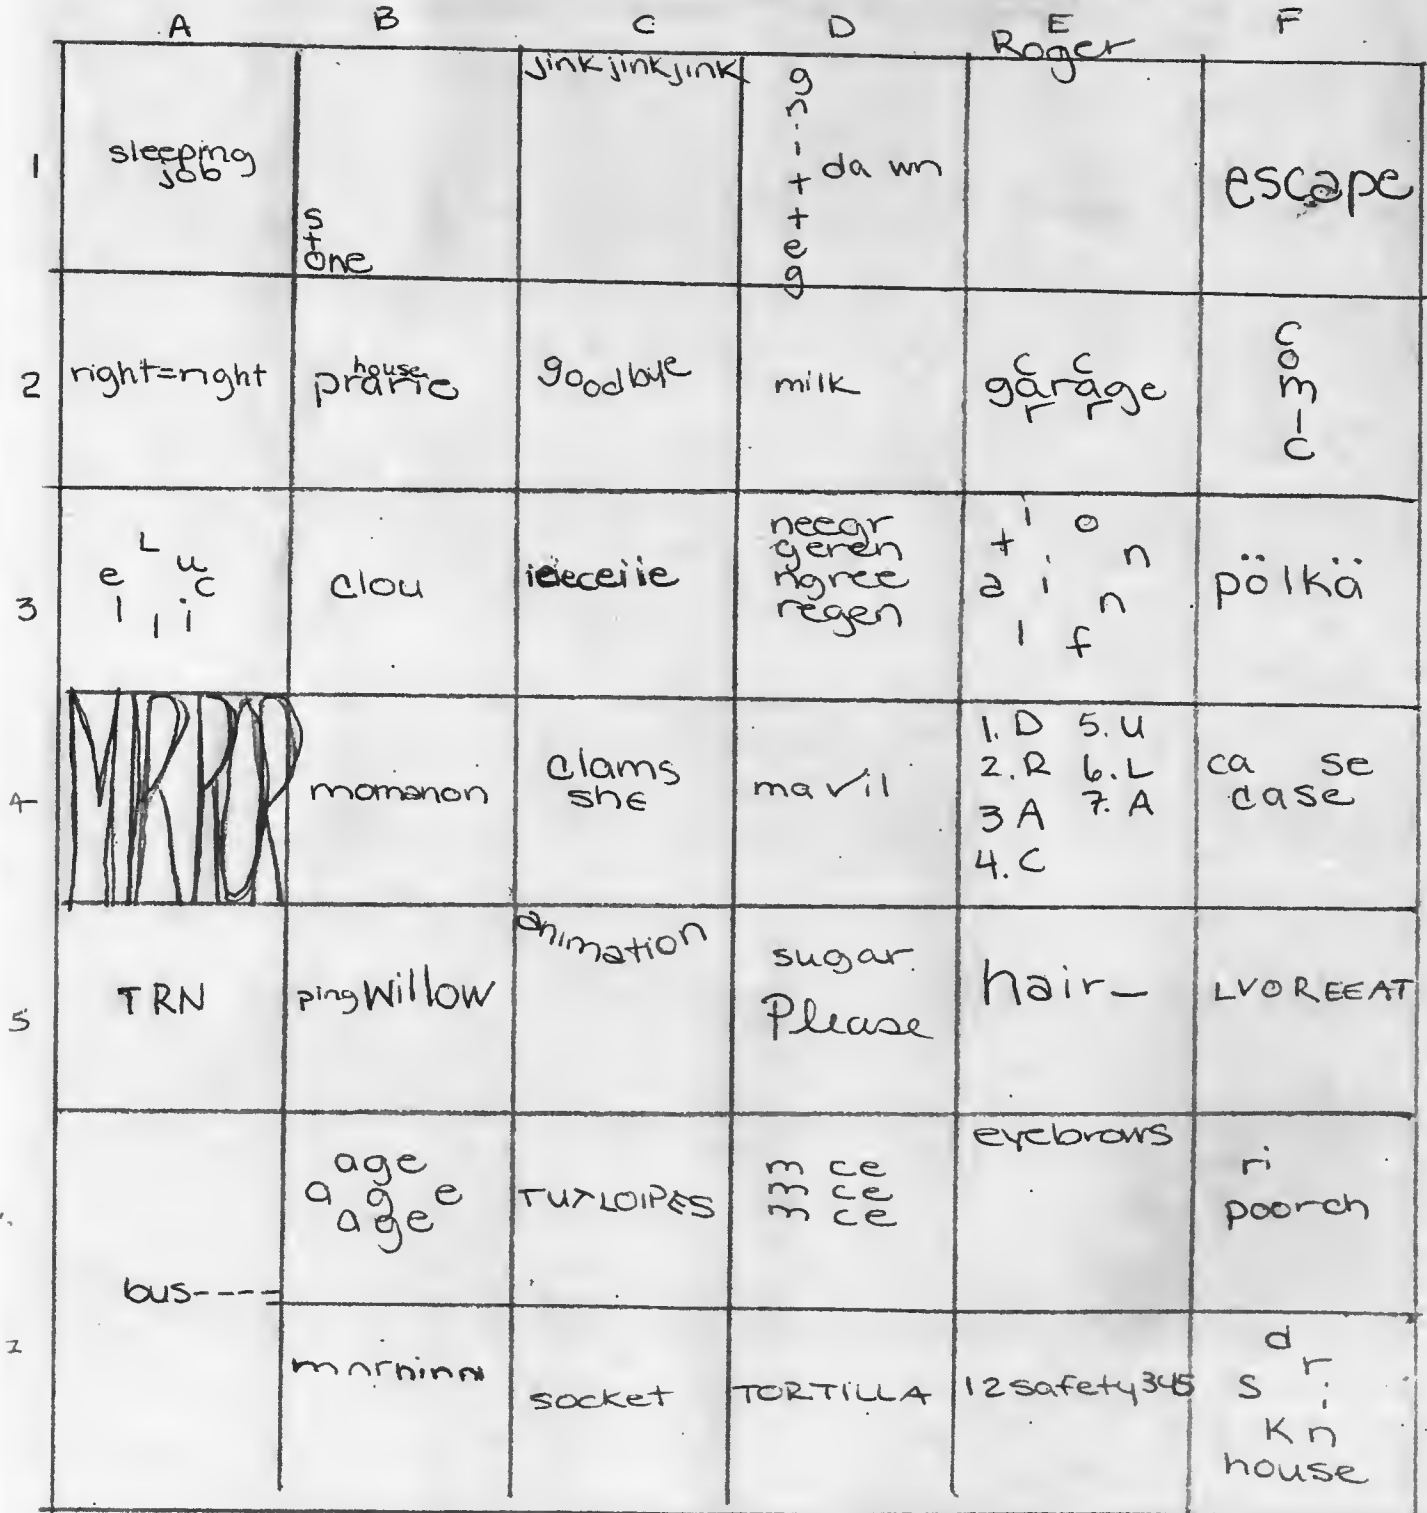 A B C D E F
Roger
1
sleeping
job
s
t
one
jinkjinkjink
g
n
i
t
t
e
g
da wn
escape
2
right=right
house
prarie
goodbye
milk
c c
garage
r r
c
o
m
i
c
3
L u c i l l e
clou
neegr
geren
ngree
regen
i n f l a t i o n
pölkä
4
MRROR
momanon
clams
she
ma vil
1. D 5. U
2. R 6. L
3 A 7. A
4. C
ca se
case
5
TRN
ping Willow
animation
sugar
Please
hair_
LVOREEAT
bus----
age
a g e
age
TUXLOIPES
m ce
m ce
m ce
eyebrows
ri
poorch
socket
TORTILLA
12safety345
d r i n k s
house